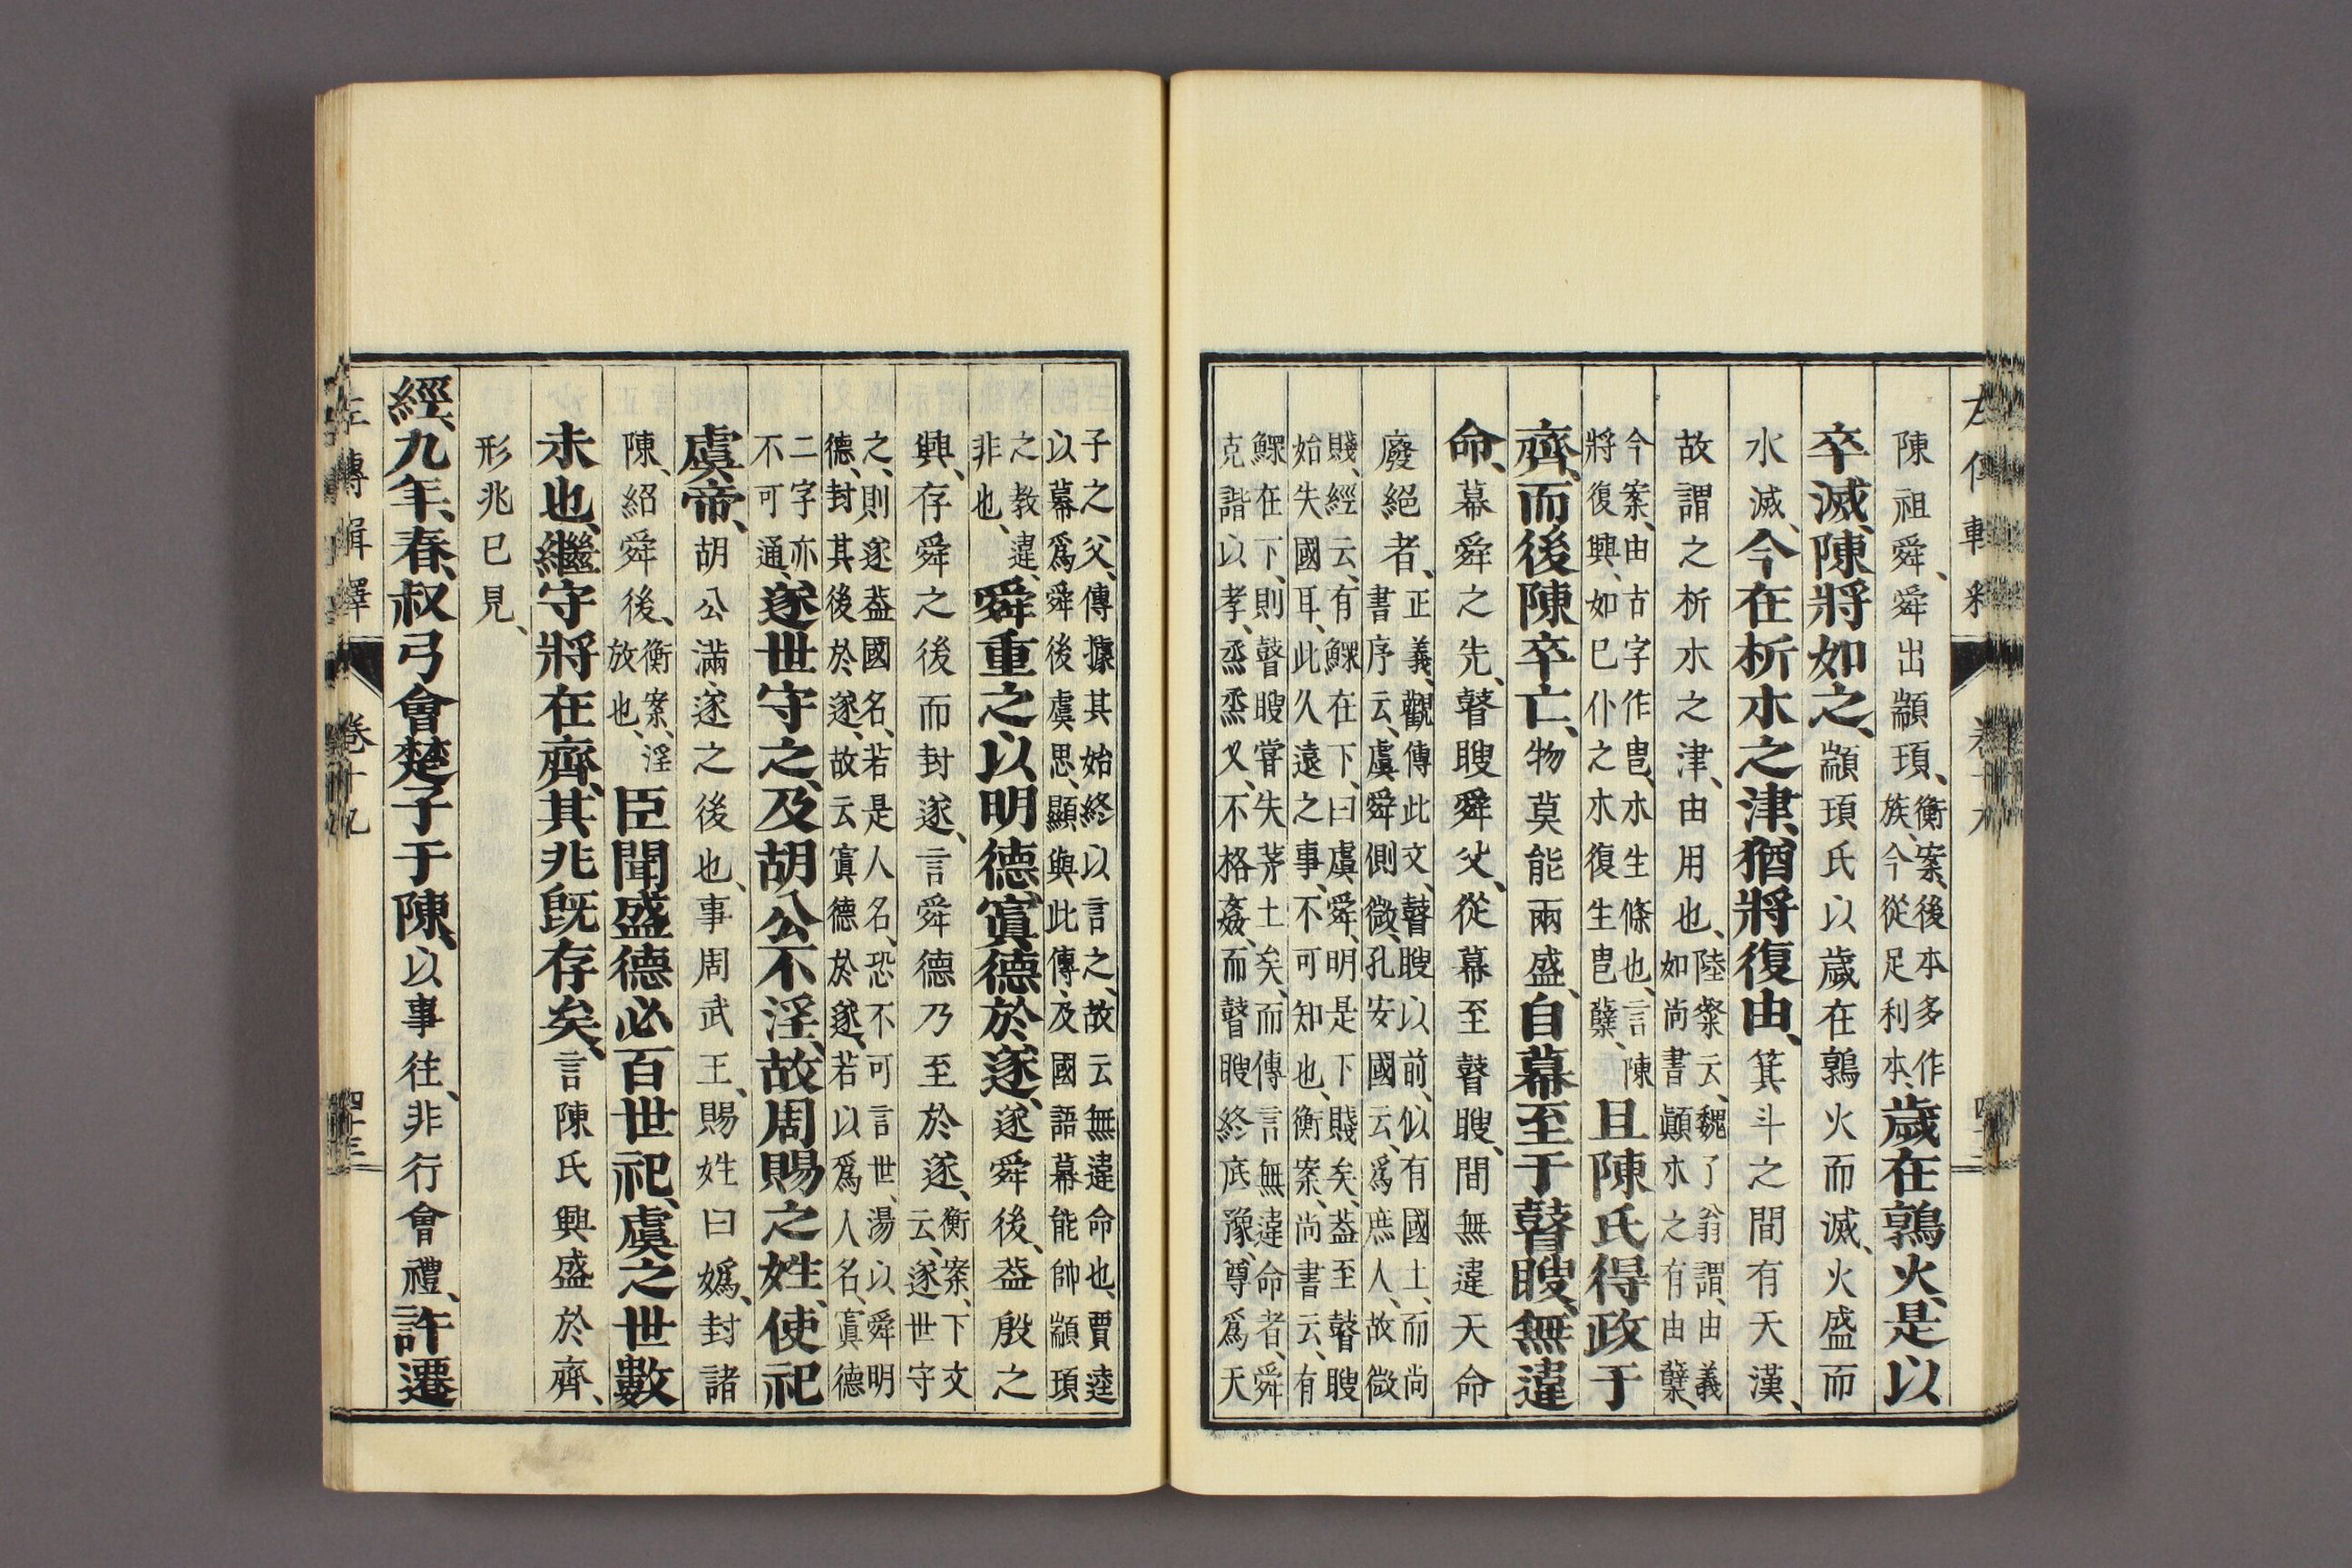 陳祖舜、舜出顓頊、衡案、後本多作族、今從足利本、歲在鶉火、是以
卒滅、陳將如之、顓頊氏以歲在鶉火而滅、火盛而
水滅、今在析木之津、猶將復由、箕斗之間有天漢、
故謂之析木之津、由用也、陸粲云、魏了翁謂、由義如尚書顚木之有由蘖、
今案、由古字作㽕、木生條也、言陳將復興、如已仆之木復生㽕蘖、且陳氏得政于
齊、而後陳卒亡、物莫能兩盛、自幕至于瞽瞍、無違
命、幕舜之先、瞽瞍舜父、從幕至瞽瞍、間無違天命
廢絕者、正義、觀傳此文、瞽瞍以前、似有國土、而尚書序云、虞舜側微、孔安國云、爲庶人、故微
賤、經云、有鰥在下、曰虞舜、明是下賤矣、葢至瞽瞍始失國耳、此久遠之事、不可知也、衡案、尚書云、有
鰥在下、則瞽瞍嘗失茅土矣、而傳言無違命者、舜克諧以孝、烝烝乂、不格姦、而瞽瞍終底豫、尊爲天
子之父、傳據其始終以言之、故云無違命也、賈逵以幕爲舜後虞思、顯與此傳、及國語幕能帥顓頊
之教違、非也、舜重之以明德、寘德於遂、遂舜後、葢殷之
興、存舜之後而封遂、言舜德乃至於遂、衡案、下文云、遂世守
之、則遂葢國名、若是人名、恐不可言世、湯以舜明德、封其後於遂、故云寘德於遂、若以爲人名、寘德
二字亦不可通、遂世守之、及胡公不淫、故周賜之姓、使祀
虞帝、胡公滿、遂之後也、事周武王、賜姓曰嬀、封諸
陳、紹舜後、衡案、淫放也、臣聞盛德必百世祀、虞之世數
未也、繼守將在齊、其兆既存矣、言陳氏興盛於齊、
形兆已見、
經、九年、春、叔弓會楚子于陳、以事往、非行會禮、許遷
左傳輯釋 卷十九